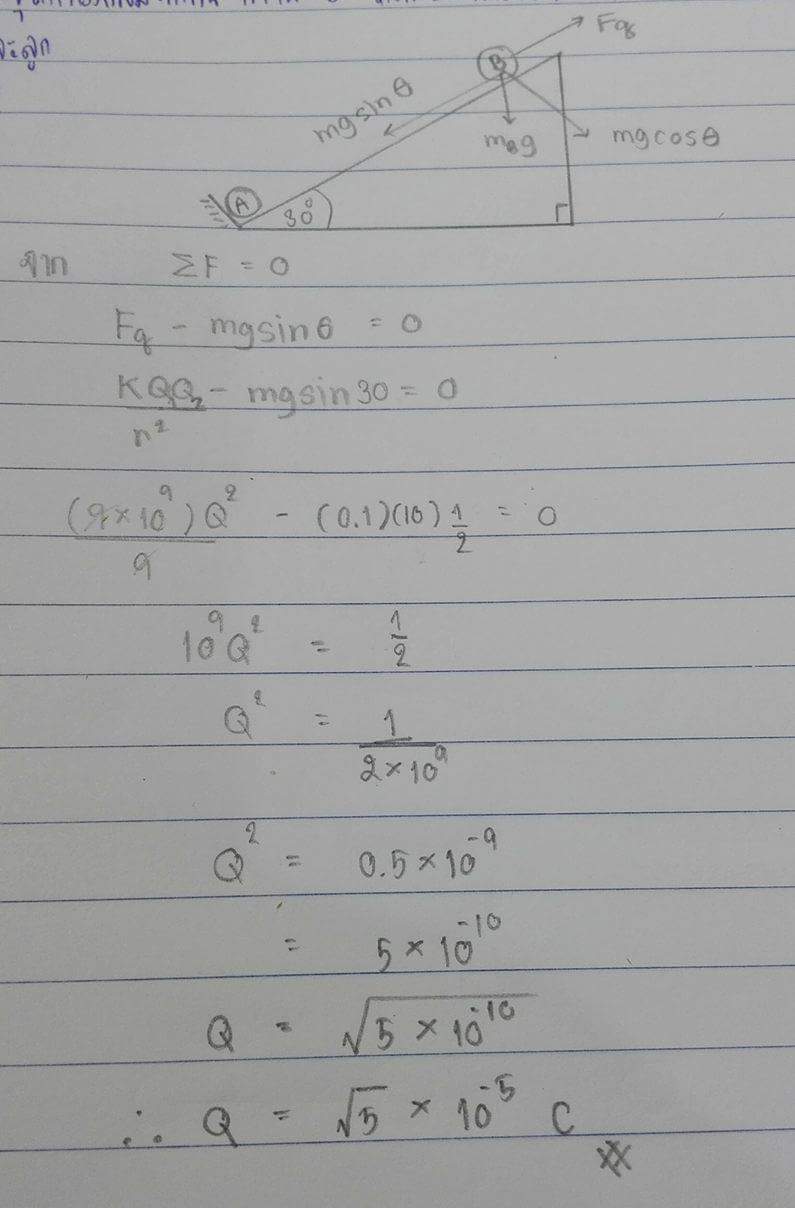 ะลูก
Fq
B
mgsinθ
mBg
mgcosθ
A
30°
จาก ΣF = 0
Fq - mgsinθ = 0
KQ₁Q₂/r² - mgsin30 = 0
(9×10⁹)Q²/9 - (0.1)(10)1/2 = 0
10⁹Q² = 1/2
Q² = 1/2×10⁹
Q² = 0.5×10⁻⁹
= 5×10⁻¹⁰
Q = √5×10⁻¹⁰
∴ Q = √5 × 10⁻⁵ C